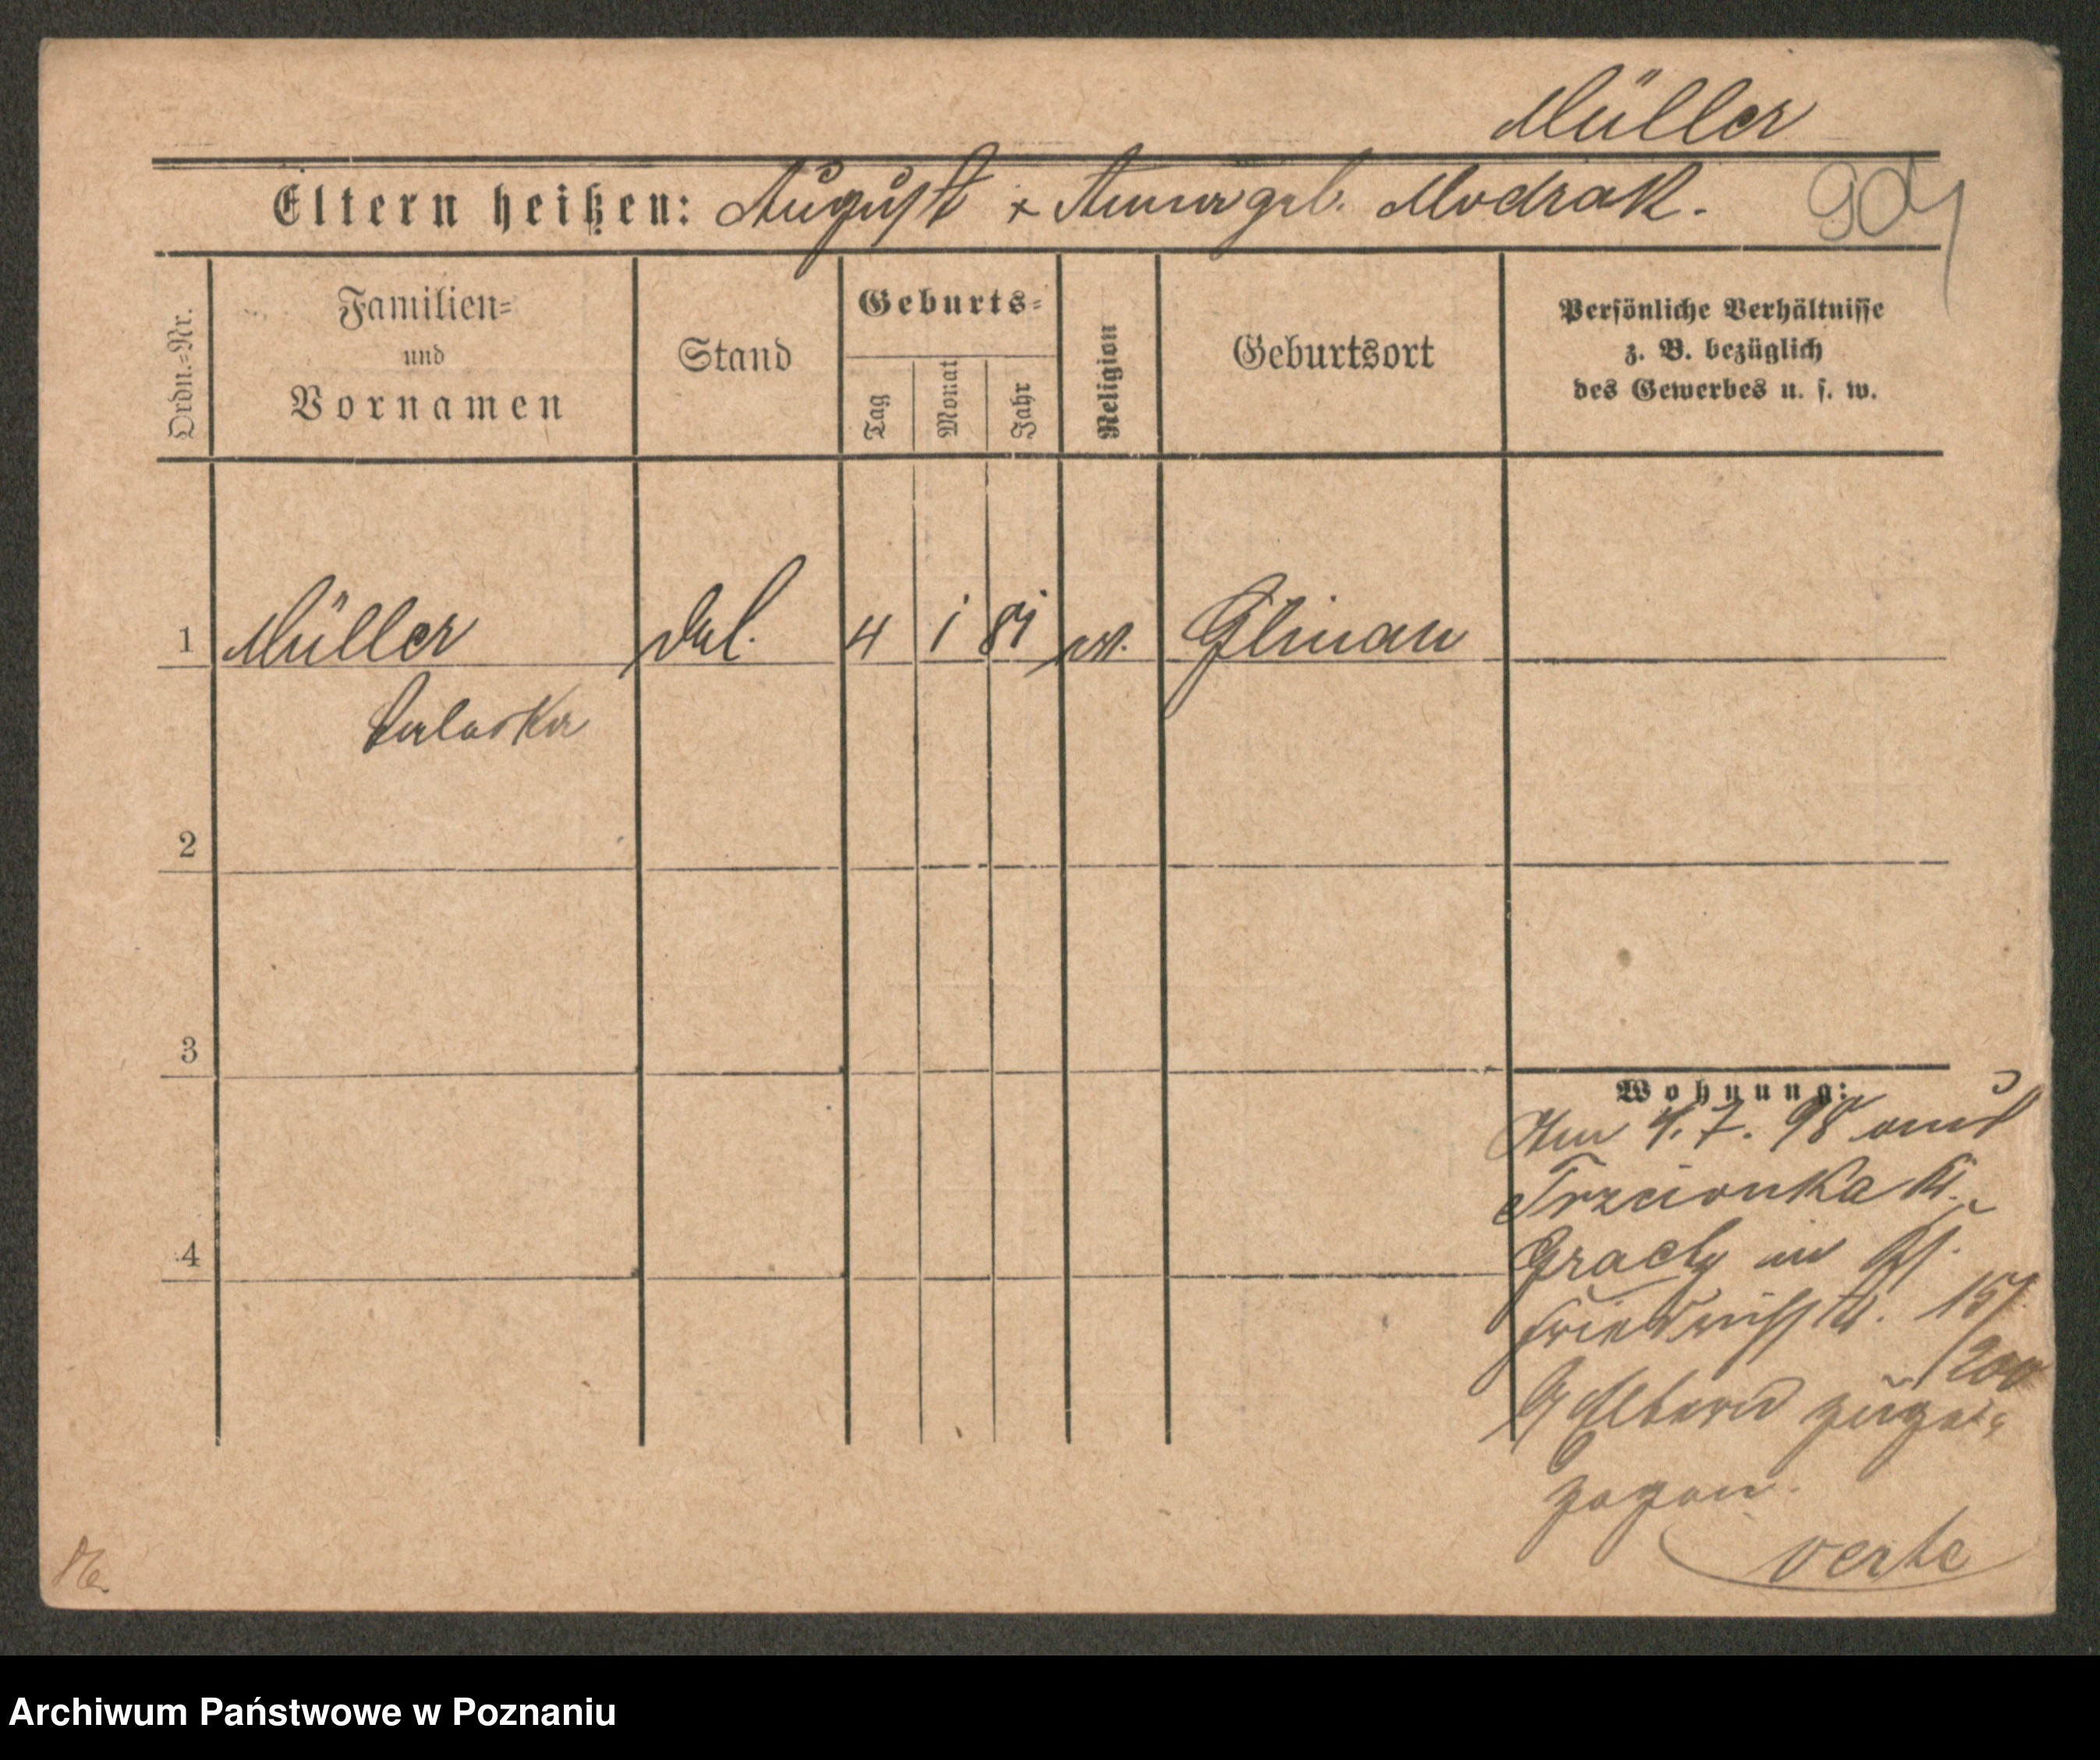 Müller
Eltern heißen: August + Anna geb. Modrak.
904
Ordn.=Nr.
Familien=
und
Vornamen
Stand
Geburts=
Tag
Monat
Jahr
Religion
Geburtsort
Persönliche Verhältnisse
z. B. bezüglich
des Gewerbes u. s. w.
1 Müller 4 1 81 Glinau
Valeska
2
3
Wohnung:
Am 4. 7. 98 aus
Trzcionka K.
4
Graetz in
Friedrichstr. 15/
200
Eltern zuge=
zogen.
verte
Archiwum Państwowe w Poznaniu